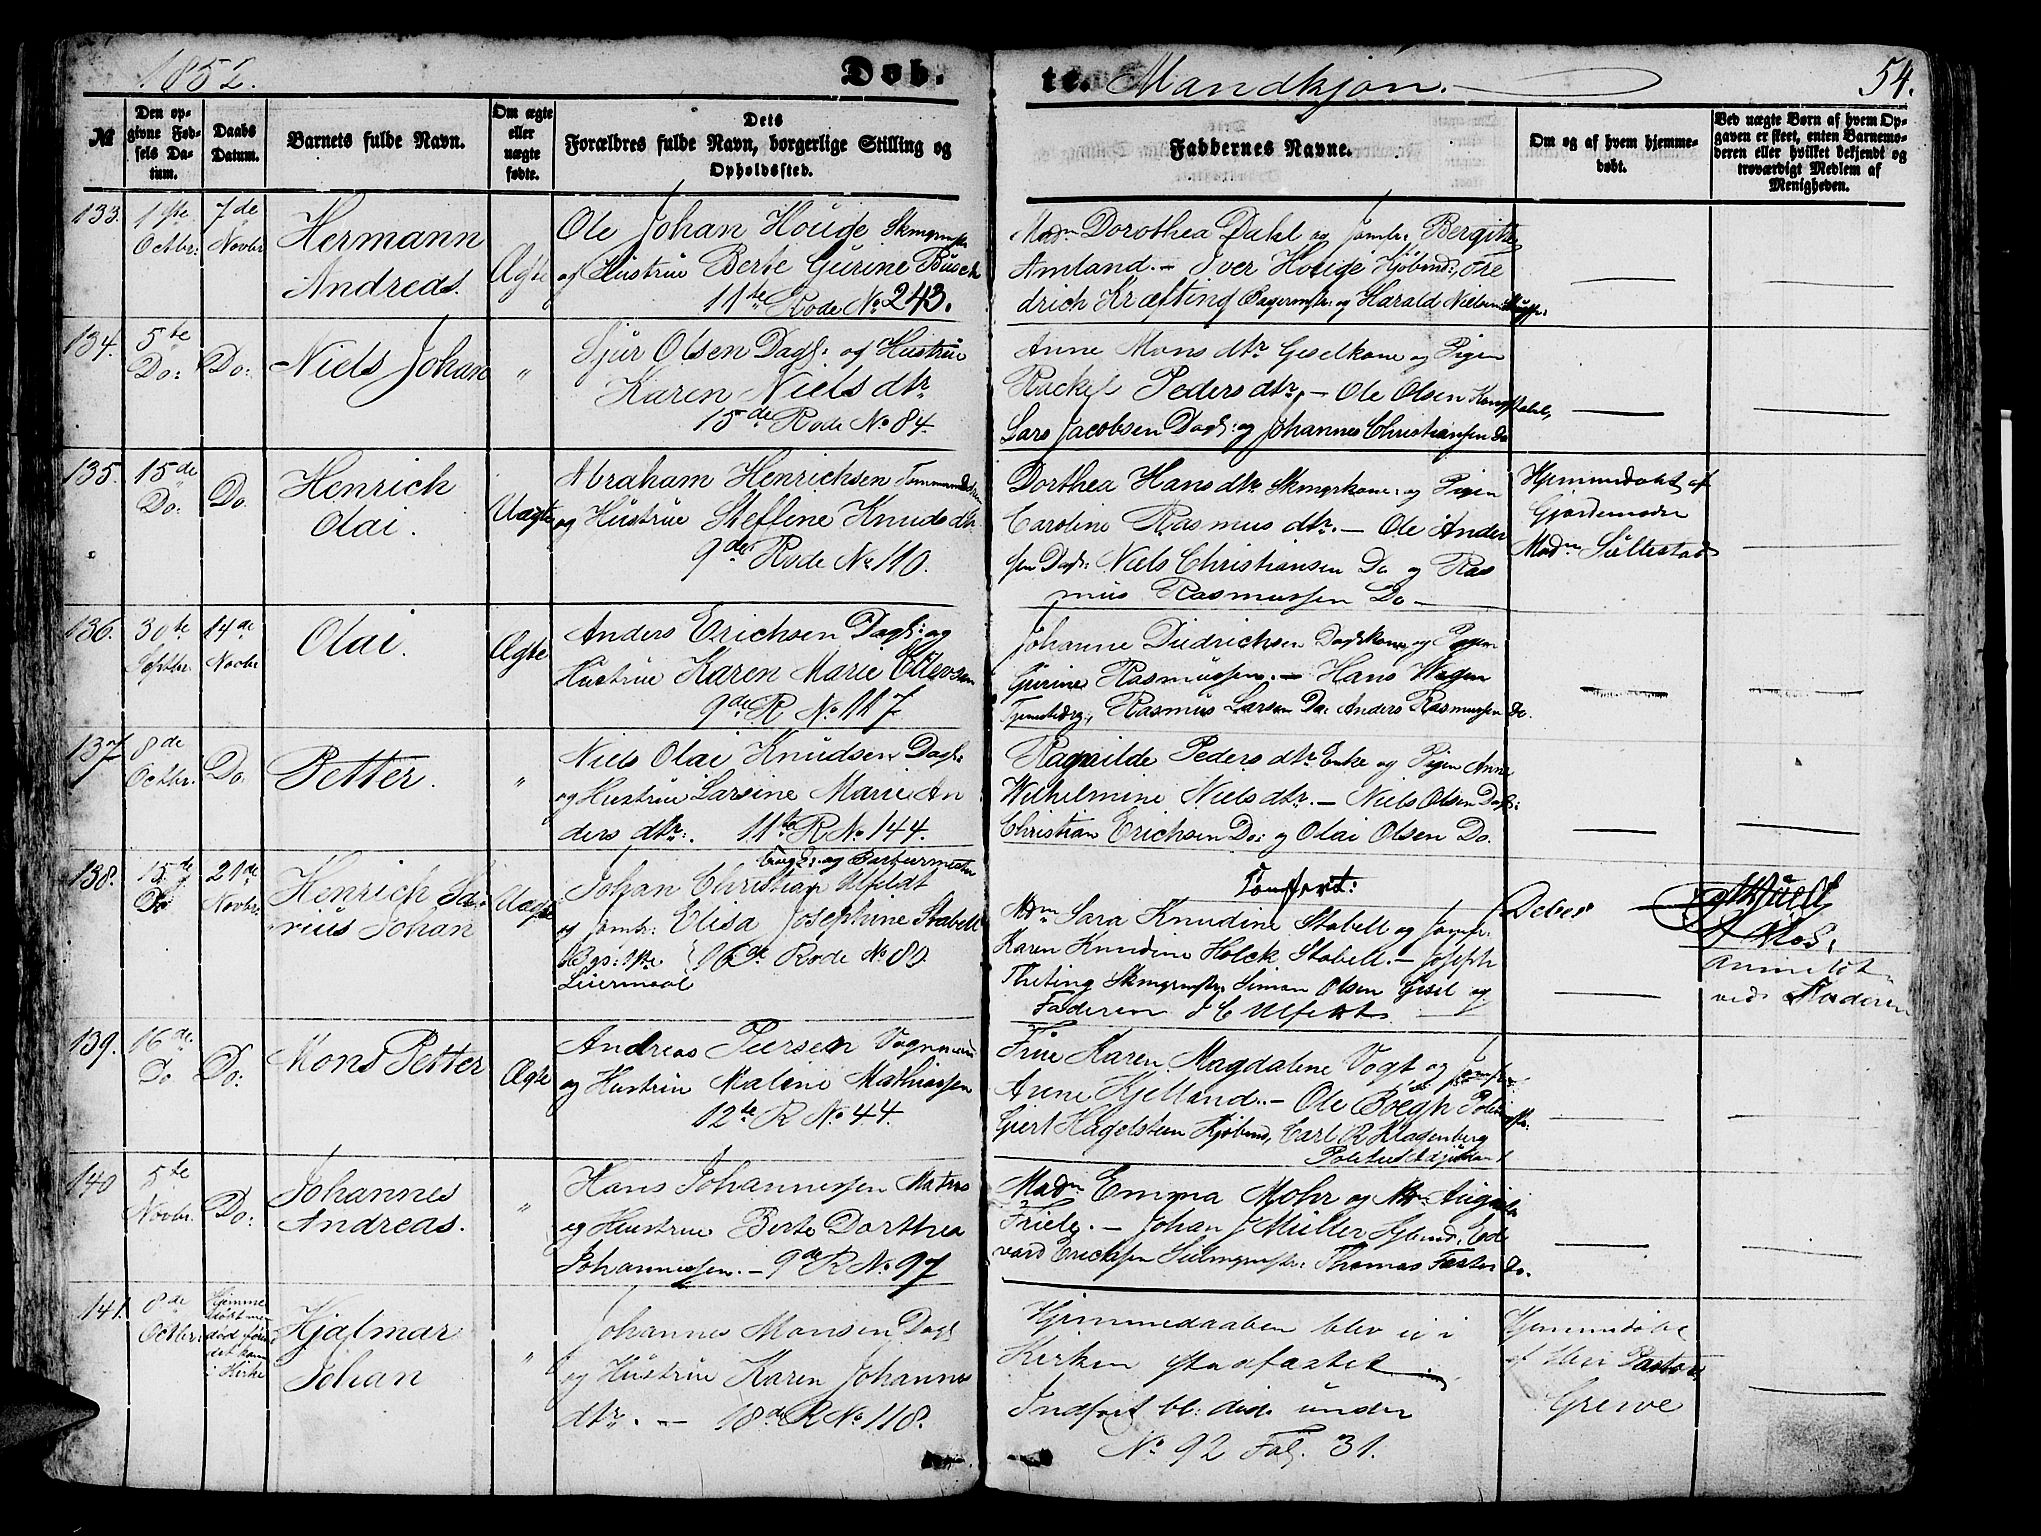 1852.
Døb.
te. Mandkjøn.
54.
No
Den opgivne Fødsels Datum.
Daabs Datum.
Barnets fulde Navn.
Om ægte eller uægte fødte.
Dets
Forældres fulde Navn, borgerlige Stilling og
Opholdssted.
Faddernes Navne.
Om og af hvem hjemmedøbt.
Ved uægte Børn af hvem Opgaven er skeet, enten Barnemoderen eller hvilket bekjendt og troværdigt Medlem af Menigheden.
133.
1ste
Octbr:
7de
Novbr
Hermann
Andreas.
Ægte
Ole Johan Houge
og Hustrue Berte Gurine Busch
11te Rode No 243.
Madm Dorothea Dahl og Jomfr: Bergitte
Amland. – Iver Houge Kjøbmd:, Fre
drich Kræfting og Harald Nielsen
134.
5te
Do:
Do:
Niels Johan
"
Sjur Olsen Dagl: og Hustrue
Karen Niels dtr
15de Rode No 84.
Anne Mons dtr Geselkone og Pigen
Rackel Peders dtr, – Ole Olsen
Lars Jacobsen Dagl: og Johannes Christiansen do
135.
15de
Do:
Do
Henrich
Olai.
Uægte
Abraham Henrichsen
og Hustrue Steffine Knuds dtr
9de Rode No 110.
Dorthea Hans dtr og Pigen
Caroline Rasmus dtr. – Ole Ander
sen Dagl: Niels Christiansen Do og Ras
mus Rasmussen Do –
Hjemmedøbt af
Gjordemoder
Madm Sültestad
136.
30te
Septbr.
14de
Novbr
Olai.
Ægte
Anders Erichsen Dagl: og
Hustrue Karen Marie Ellevsen
9de R No 117
Johanne Diedrichsen Daglkone og Pigen
Gurine Rasmussen. – Hans Wagen
Rasmus Larsen Do: Anders Rasmussen Do.
137
8de
Octbr.
Do.
Petter.
"
Niels Olai Knudsen Dagl:
og Hustrue Larsine Marie An
ders dtr. 11te R No 144.
Ragnilde Peders dtr Enke og Pigen Anne
Wilhelmine Niels dtr. – Niels Olsen Dagl:
Christian Erichsen Do: og Olai Olsen Do.
138.
15de
Do
21de
Novbr.
Henrich Sa
rius Johan
Uægte
og Barbermester
Johan Christian Ulfeldt
og Jomfr: Elisa Josephine Stabell
Begs: 1ste
Leiermaal
16de Rode No 80
Madm Sara Knudine Stabell og Jomfr.
Karen Knudine Holck Stabell. – Joseph
Thiting Skmgrmstr: Simon Olsen Gesel og
Faderen J C Ulfeldt
Anmeldt
ved Moderen
139.
16de
Do
Do:
Mons Petter
Ægte
Andreas Peersen Vognmand
og Hustrue Malene Mathiassen
12te R No 44.
Frue Karen Magdalene Vogt og Jomfr:
Anne Kjelland. – Ole Bøegh
Giert Hagelsteen Kjøbmd, Carl R Klagenberg
Politie Adjutant
140
5te
Novbr.
Do:
Johannes
Andreas.
"
Hans Johannessen Matros
og Hustrue Berte Dorthea
Johannessen. – 9de R No 97
Madm Emma Mohr og Mdm Augusta
Friele. – Johan J Müller Kjbmd, Ed
vard Erichsen Thomas Faster Do.
141.
8de
Octbr:
Hjemme
døbt men
død føren
det kom
i Kirke
Hjalmar
Johan
"
Johannes Monsen Dagl
og Hustrue Karen Johannes
dtr. – 18de R No 118.
Hjemmedaaben blev ei i
Kirken stadfæstet.
Indført bl: døde under
No 92 Fol. 31.
Hjemmedøbt
af Herr Pastor
Greve